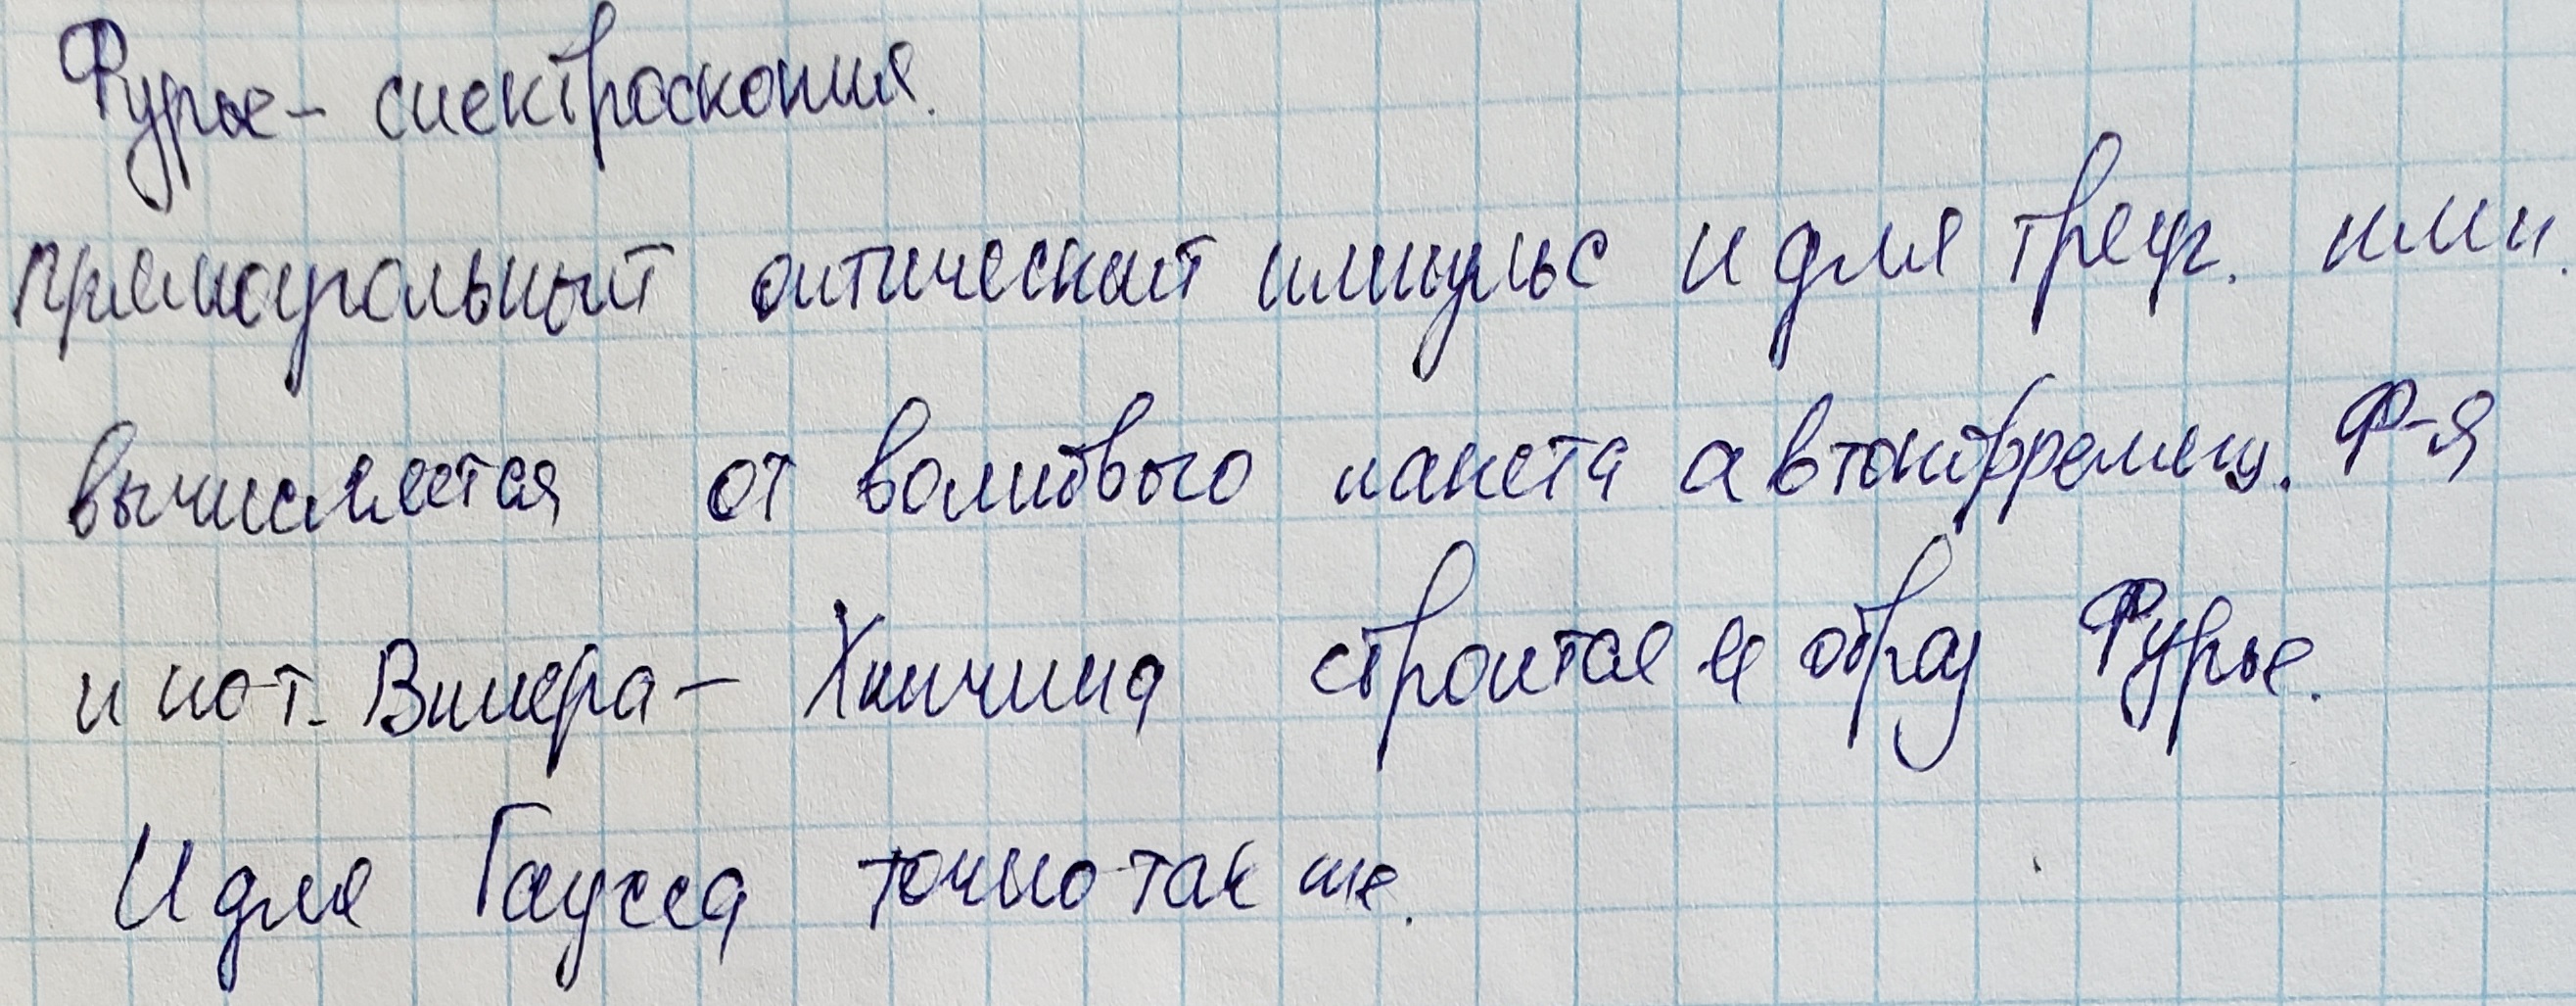 Фурье - спектроскопия.
прямоугольный оптический импульс и для треуг. имп.
вычисляется от волнового пакета автокорреляц. Ф-я
и по т. Винера - Хинчина строится её образ Фурье.
И для Гаусса точно так же.